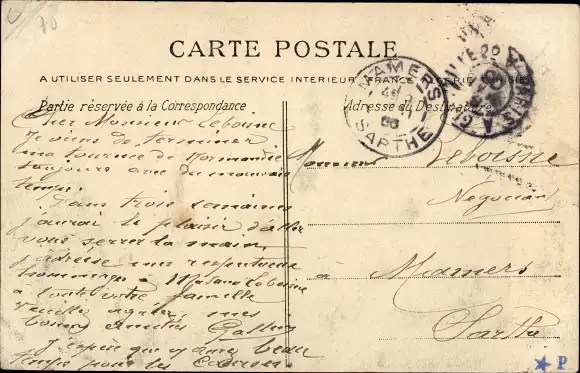 CARTE POSTALE
A UTILISER SEULEMENT DANS LE SERVICE INTERIEUR FRANCE ALGERIE TUNISIE
Partie réservée à la Correspondance
Adresse du Destinataire
MAMERS
SARTHE
PARIS
Cher Monsieur Leboisne
Je viens de terminer
ma tournée de Normandie
toujours avec du mauvais
temps.
Dans trois semaines
j'aurai le plaisir d'aller
vous serrer la main,
j'adresse mes respectueux
hommages à Madame Leboisne
à toute votre famille
Veuillez agréer mes
bonnes Amitiés
J'espère que
temps pour les
Monsieur Leboisne
Négociant
à Mamers
Sarthe
P